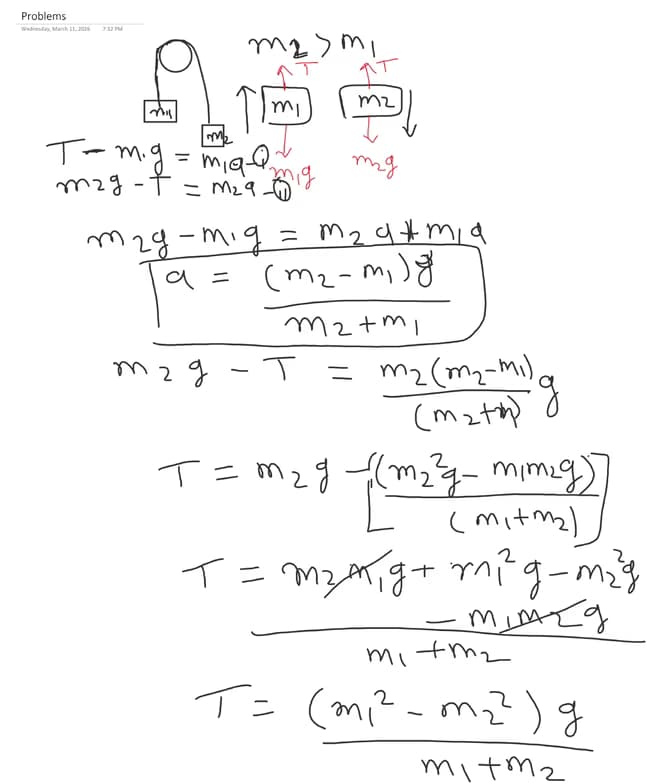 Problems
Wednesday, March 11, 2026 7:32 PM
m2 > m1
T T
m1 m1 m2
m2
T - m1g = m1a - ①
m1g m2g
m2g - T = m2a - ⑪
m2g - m1g = m2a + m1a
a = (m2 - m1)g
m2 + m1
m2g - T = m2(m2-m1)g
(m2+m)
T = m2g - [(m2²g - m1m2g)]
(m1+m2)
T = m2m1g + m1²g - m2²g
- m1m2g
m1 + m2
T = (m1² - m2²)g
m1 + m2